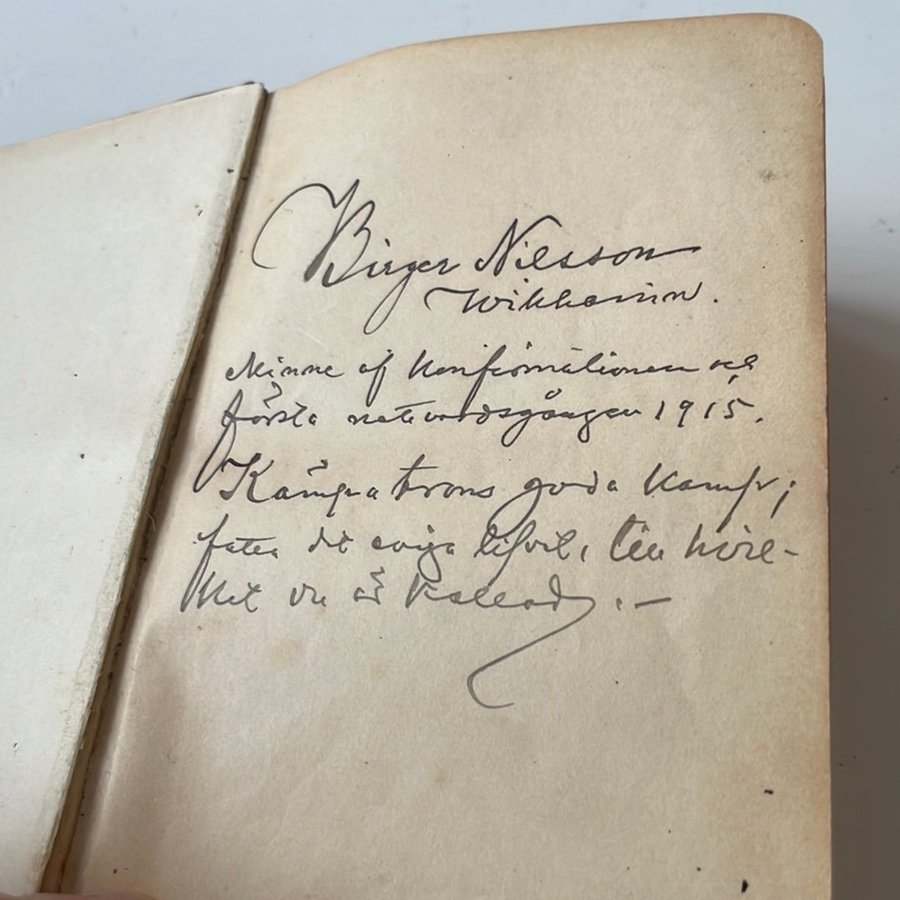 Birger Nilsson
Wikhamn.
Minne af Konfirmationen och
första nattvardsgången 1915.
Kämpa trons goda kamp;
fatta det eviga lifvet, till hvil-
ket du är kallad. –